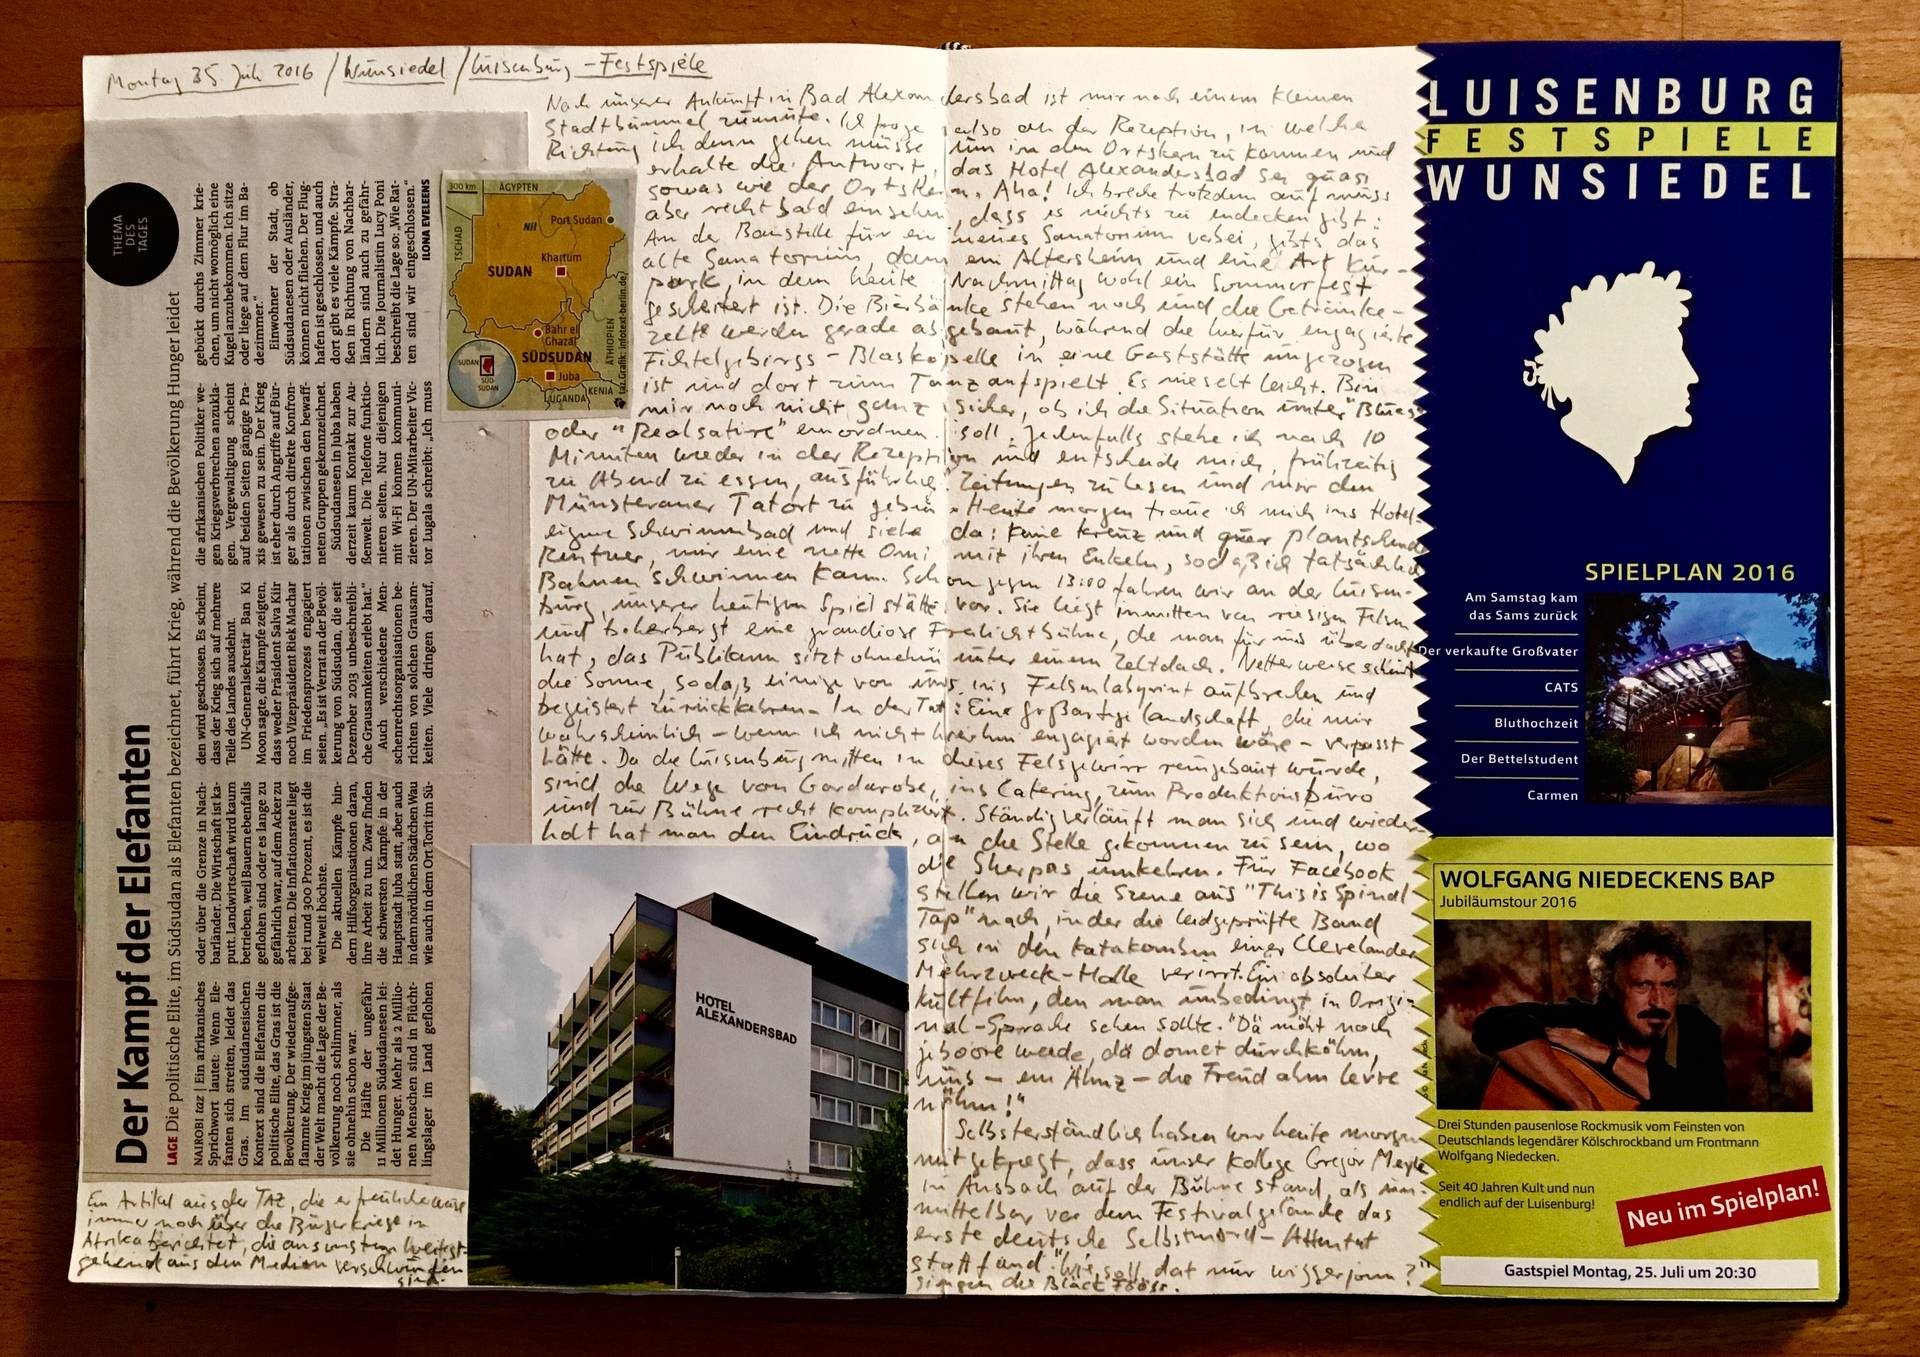 Montag 25. Juli 2016 / Wunsiedel / Luisenburg-Festspiele
THEMA
DES
TAGES
Der Kampf der Elefanten
LAGE Die politische Elite, im Südsudan als Elefanten bezeichnet, führt Krieg, während die Bevölkerung Hunger leidet
NAIROBI taz | Ein afrikanisches
Sprichwort lautet: Wenn Ele-
fanten sich streiten, leidet das
Gras. Im südsudanesischen
Kontext sind die Elefanten die
politische Elite, das Gras ist die
Bevölkerung. Der wiederaufge-
flammte Krieg im jüngsten Staat
der Welt macht die Lage der Be-
völkerung noch schlimmer, als
sie ohnehin schon war.
Die Hälfte der ungefähr
11 Millionen Südsudanesen lei-
det Hunger. Mehr als 2 Millio-
nen Menschen sind in Flücht-
lingslager im Land geflohen
oder über die Grenze in Nach-
barländer. Die Wirtschaft ist ka-
putt. Landwirtschaft wird kaum
betrieben, weil Bauern ebenfalls
geflohen sind oder es lange zu
gefährlich war, auf dem Acker zu
arbeiten. Die Inflationsrate liegt
bei rund 300 Prozent, es ist die
weltweit höchste.
Die aktuellen Kämpfe hin-
dern Hilfsorganisationen daran,
ihre Arbeit zu tun. Zwar finden
die schwersten Kämpfe in der
Hauptstadt Juba statt, aber auch
in dem nördlichen Städtchen Wau
wie auch in dem Ort Torit im Sü-
den wird geschossen. Es scheint,
dass der Krieg sich auf mehrere
Teile des Landes ausdehnt.
UN-Generalsekretär Ban Ki
Moon sagte, die Kämpfe zeigten,
dass weder Präsident Salva Kiir
noch Vizepräsident Riek Machar
im Friedensprozess engagiert
seien. „Es ist Verrat an der Bevöl-
kerung von Südsudan, die seit
Dezember 2013 unbeschreibli-
che Grausamkeiten erlebt hat.“
Auch verschiedene Men-
schenrechtsorganisationen be-
richten von solchen Grausam-
keiten. Viele dringen darauf,
die afrikanischen Politiker we-
gen Kriegsverbrechen anzukla-
gen. Vergewaltigung scheint
auf beiden Seiten gängige Pra-
xis gewesen zu sein. Der Krieg
ist eher durch Angriffe auf Bür-
ger als durch direkte Konfron-
tationen zwischen den bewaff-
neten Gruppen gekennzeichnet.
Südsudanesen in Juba haben
derzeit kaum Kontakt zur Au-
ßenwelt. Die Telefone funktio-
nieren selten. Nur diejenigen
mit Wi-Fi können kommuni-
zieren. Der UN-Mitarbeiter Vic-
tor Lugala schreibt: „Ich muss
gebückt durchs Zimmer krie-
chen, um nicht womöglich eine
Kugel anzubekommen. Ich sitze
oder liege auf dem Flur im Ba-
dezimmer.“
Einwohner der Stadt, ob
Südsudanesen oder Ausländer,
können nicht fliehen. Der Flug-
hafen ist geschlossen, und auch
dort gibt es viele Kämpfe. Stra-
ßen in Richtung von Nachbar-
ländern sind auch zu gefähr-
lich. Die Journalistin Lucy Poni
beschreibt die Lage so: „Wie Rat-
ten sind wir eingeschlossen.“
ILONA EVELEENS
300 km
ÄGYPTEN
TSCHAD
Nil
Port Sudan
SUDAN
Khartum
Bahr el
Ghazal
ÄTHIOPIEN
SÜDSUDAN
SUDAN
SÜD-
SUDAN
Juba
KENIA
UGANDA
taz.Grafik: infotext-berlin.de
Ein Artikel aus der TAZ, die erfreulicherweise
immer noch über die Bürgerkriege in
Afrika berichtet, die ansonsten weitest-
gehend aus den Medien verschwunden
sind.
Nach unserer Ankunft in Bad Alexandersbad ist mir nach einem kleinen
Stadtbummel zumute. Ich frage also an der Rezeption, in welche
Richtung ich denn gehen müsse um in den Ortskern zu kommen und
erhalte die Antwort, das Hotel Alexandersbad sei quasi
sowas wie der Ortskern. Aha! Ich breche trotzdem auf, muss
aber recht bald einsehen, dass es nichts zu endecken gibt:
An der Baustelle für ein neues Sanatorium vorbei, gibts das
alte Sanatorium, dann ein Altersheim und eine Art Kur-
park, in dem heute Nachmittag wohl ein Sommerfest
gescheitert ist. Die Bierbänke stehen noch und die Getränke-
zelte werden gerade abgebaut, während die hierfür engagierte
Fichtelgebirgs-Blaskapelle in eine Gaststätte umgezogen
ist und dort zum Tanz aufspielt. Es nieselt leicht. Bin
mir noch nicht ganz sicher, ob ich die Situation unter "Blues"
oder "Realsatire" einordnen soll. Jedenfalls stehe ich nach 10
Minuten wieder in der Rezeption und entscheide mich, frühzeitig
zu Abend zu essen, ausführlich Zeitungen zu lesen und mir den
Münsteraner Tatort zu geben. Heute morgen traue ich mich ins Hotel-
eigene Schwimmbad und siehe da: Keine kreuz und quer plantschende
Rentner, nur eine nette Omi mit ihren Enkeln, sodaß ich tatsächlich
Bahnen schwimmen kann. Schon gegen 13:00 fahren wir an der Luisen-
burg, unserer heutigen Spielstätte vor. Sie liegt inmitten von riesigen Felsen
und beherbergt eine grandiose Freilichtbühne, die man für uns überdacht
hat, das Publikum sitzt ohnehin unter einem Zeltdach. Netterweise scheint
die Sonne, sodaß einige von uns ins Felsenlabyrint aufbrechen und
begeistert zurückkehren. In der Tat: Eine großartige Landschaft, die mir
wahrscheinlich – wenn ich nicht hierhin engagiert worden wäre – verpasst
hätte. Da die Luisenburg mitten in dieses Felsgewirr reingebaut wurde,
sind die Wege von Garderobe, ins Catering, zum Produktionsbüro
und zur Bühne recht kompliziert. Ständig verläuft man sich und wieder-
holt hat man den Eindruck, an die Stelle gekommen zu sein, wo
die Sherpas umkehren. Für Facebook
stellen wir die Szene aus "This is Spinal
Tap" nach, in der die leidgeprüfte Band
sich in den Katakomben einer Clevelander
Mehrzweck-Halle verirrt. Ein absoluter
Kultfilm, den man unbedingt in Origi-
nal-Sprache sehen sollte. "Dä möht noch
jeboore werde, dä domet durchköhm,
uns – em Ähnz – die Freud ahm Levve
nöhm!"
Selbstverständlich haben wir heute morgen
mitgekriegt, dass unser Kollege Gregor Meyle
in Ansbach auf der Bühne stand, als un-
mittelbar vor dem Festivalgelände das
erste deutsche Selbstmord-Attentat
stattfand. "Wie soll dat nur wiggerjonn?"
singen die Bläck Fööss.
HOTEL
ALEXANDERSBAD
LUISENBURG
FESTSPIELE
WUNSIEDEL
SPIELPLAN 2016
Am Samstag kam
das Sams zurück
Der verkaufte Großvater
CATS
Bluthochzeit
Der Bettelstudent
Carmen
WOLFGANG NIEDECKENS BAP
Jubiläumstour 2016
Drei Stunden pausenlose Rockmusik vom Feinsten von
Deutschlands legendärer Kölschrockband um Frontmann
Wolfgang Niedecken.
Seit 40 Jahren Kult und nun
endlich auf der Luisenburg!
Neu im Spielplan!
Gastspiel Montag, 25. Juli um 20:30